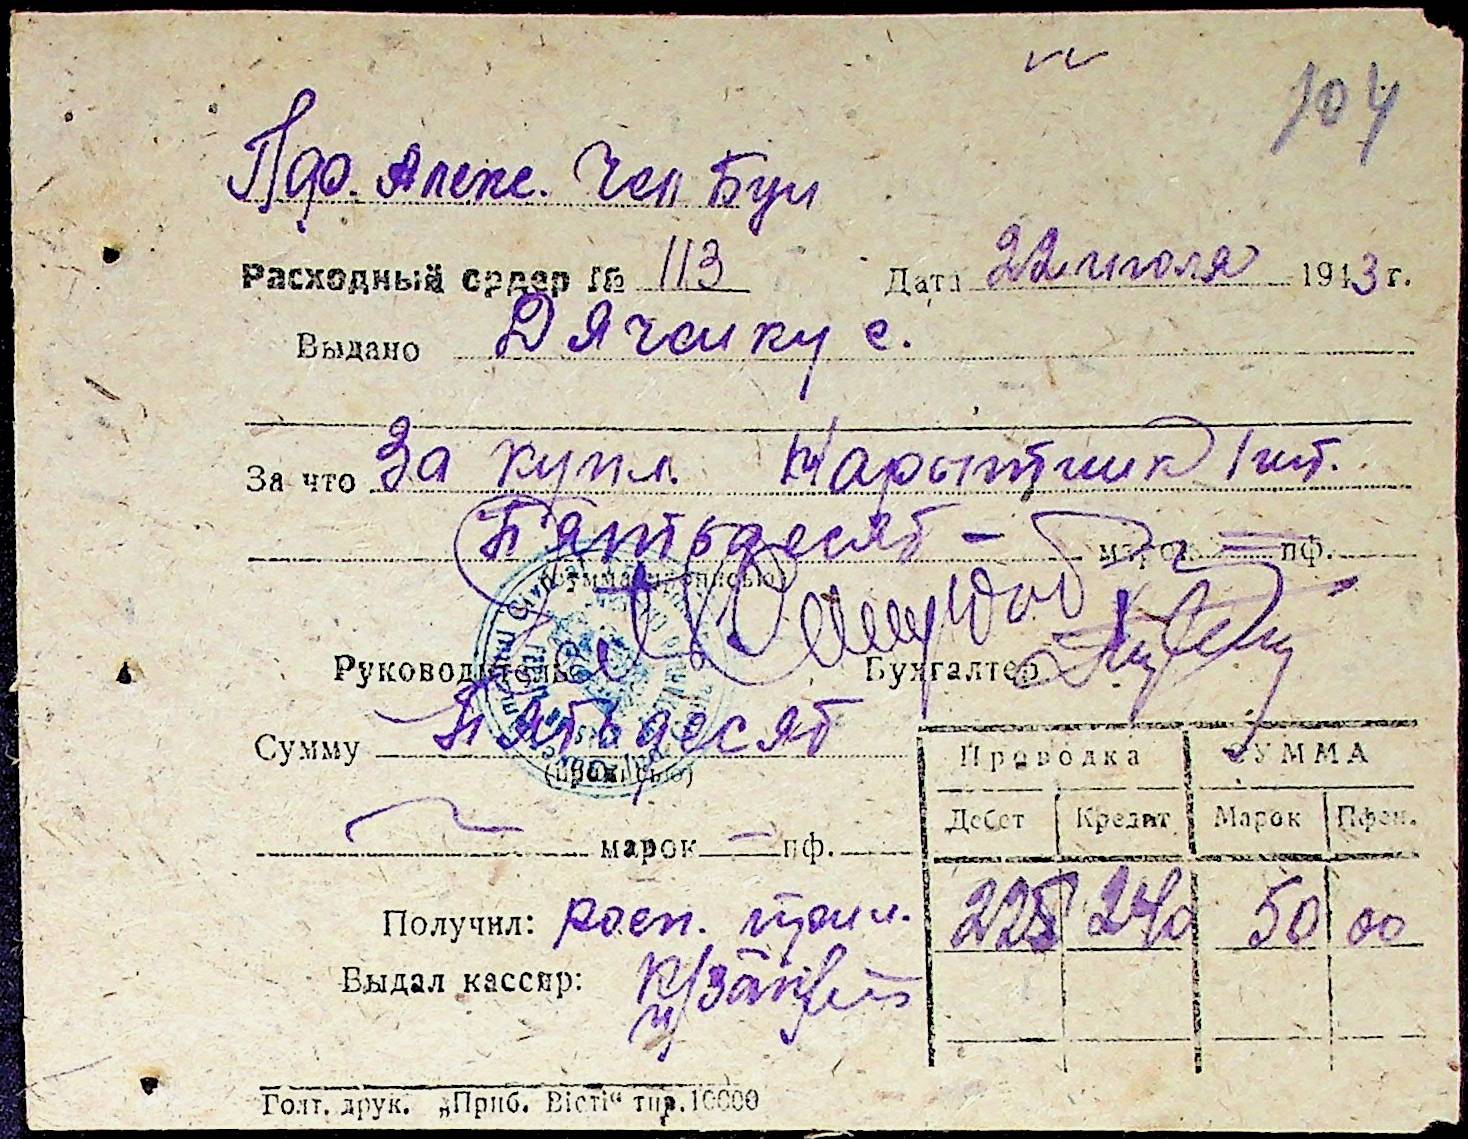 104
Пдр. Алекс. Чеп Бул
Расходный ордер № 113 Дата 22 июля 1943 г.
Выдано Дячонку с.
За что За купл. 1шт.
Пятьдесят — марок — пф.
(сумма прописью)
Руководитель Бухгалтер
Сумму Пятьдесят
(прописью)
Проводка СУММА
Дебет Кредит Марок Пфен.
марок — пф.
Получил: росп.
225 240 50 00
Выдал кассир:
Голт. друк. „Приб. Вісті“ тир. 10000